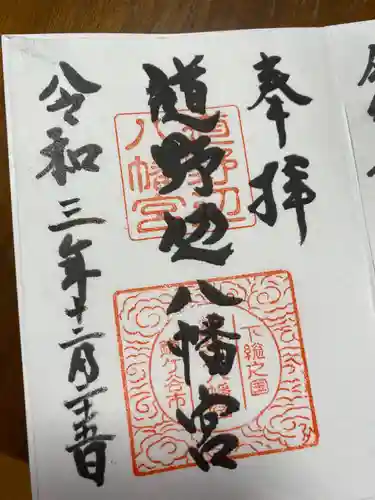 奉拝
道野辺八幡宮
令和三年十二月二十五日
道野辺
八幡宮
下総之国
鎌ケ谷市